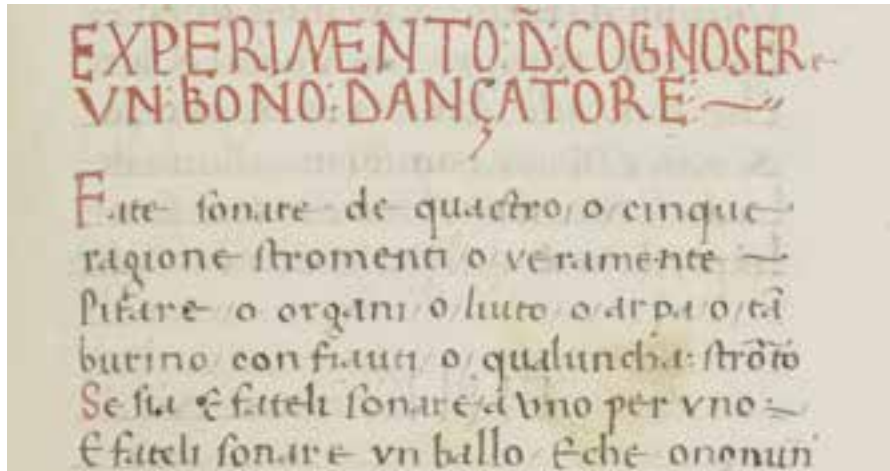 EXPERIMENTO: D̄: COGNOSER e
VN: BONO: DANÇATORE
Fate sonare de quactro o cinque
ragione stromenti o veramente
Pifare o organi o liuto o arpa o tā
burino con fiauti o qualuncha: strōto
Se sia & fateli sonare a vno per vno:
& fateli sonare vn ballo & che ononun